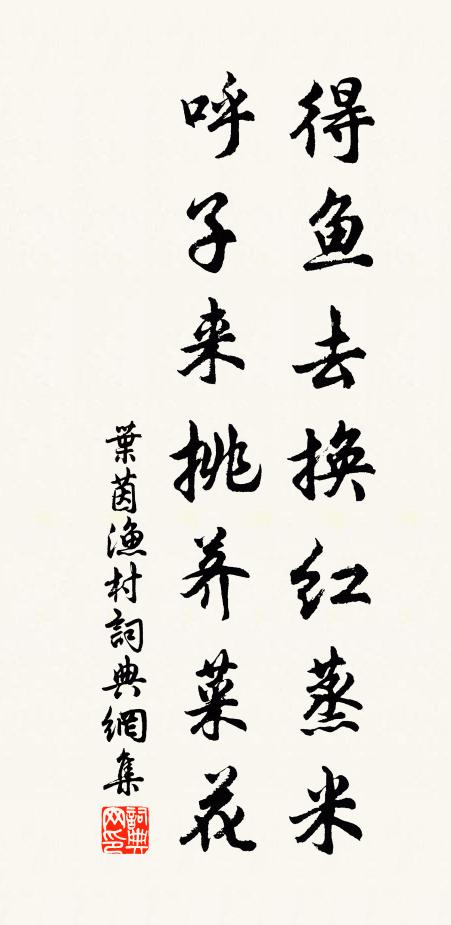 得鱼去换红蒸米
呼子来挑荠菜花
葉茵漁村詞典網集
詞典网印